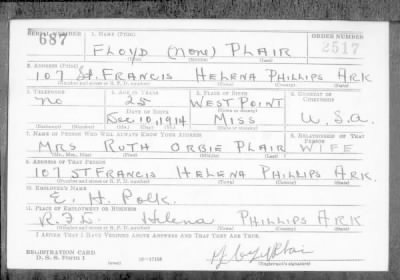 SERIAL NUMBER 1. NAME (Print) ORDER NUMBER
687 FLOYD (NONE) PLAIR 2517
(First) (Middle) (Last)
2. ADDRESS (Print)
107 St. FRANCIS HELENA PHILLIPS ARK
(Number and street or R. F. D. number) (Town) (County) (State)
3. TELEPHONE 4. AGE IN YEARS 5. PLACE OF BIRTH 6. COUNTRY OF CITIZENSHIP
No 25 WEST POINT
DATE OF BIRTH (Town or county)
Dec, 10, 1914 MISS U.S.A.
(Exchange) (Number) (Mo.) (Day) (Yr.) (State or country)
7. NAME OF PERSON WHO WILL ALWAYS KNOW YOUR ADDRESS 8. RELATIONSHIP OF THAT PERSON
MRS RUTH ORBIE PLAIR WIFE
(Mr., Mrs., Miss) (First) (Middle) (Last)
9. ADDRESS OF THAT PERSON
107 ST FRANCIS HELENA PHILLIPS ARK.
(Number and street or R. F. D. number) (Town) (County) (State)
10. EMPLOYER'S NAME
E. H. Polk.
11. PLACE OF EMPLOYMENT OR BUSINESS
R.F.D. Helena PHILLIPS ARK
(Number and street or R. F. D. number) (Town) (County) (State)
I AFFIRM THAT I HAVE VERIFIED ABOVE ANSWERS AND THAT THEY ARE TRUE.
REGISTRATION CARD
D. S. S. Form 1 (over) 16-17105 (Registrant's signature)